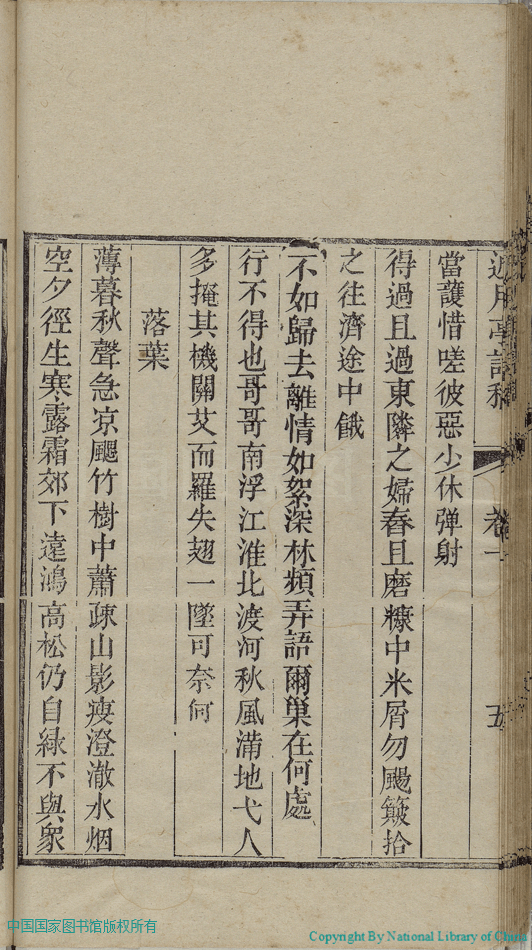 近月亭詩稿 卷一 五
當護惜嗟彼惡少休弹射
得過且過東隣之婦舂且磨糠中米屑勿颺簸拾
之往濟途中餓
不如歸去離情如絮深林頻弄語爾巢在何處
行不得也哥哥南浮江淮北渡河秋風滿地弋人
多掩其機關艾而羅失翅一墜可奈何
落葉
薄暮秋聲急凉颸竹樹中蕭疎山影瘦澄澈水烟
空夕徑生寒露霜郊下遠鴻高松仍自綠不與衆
中国国家图书馆版权所有
Copyright By National Library of China